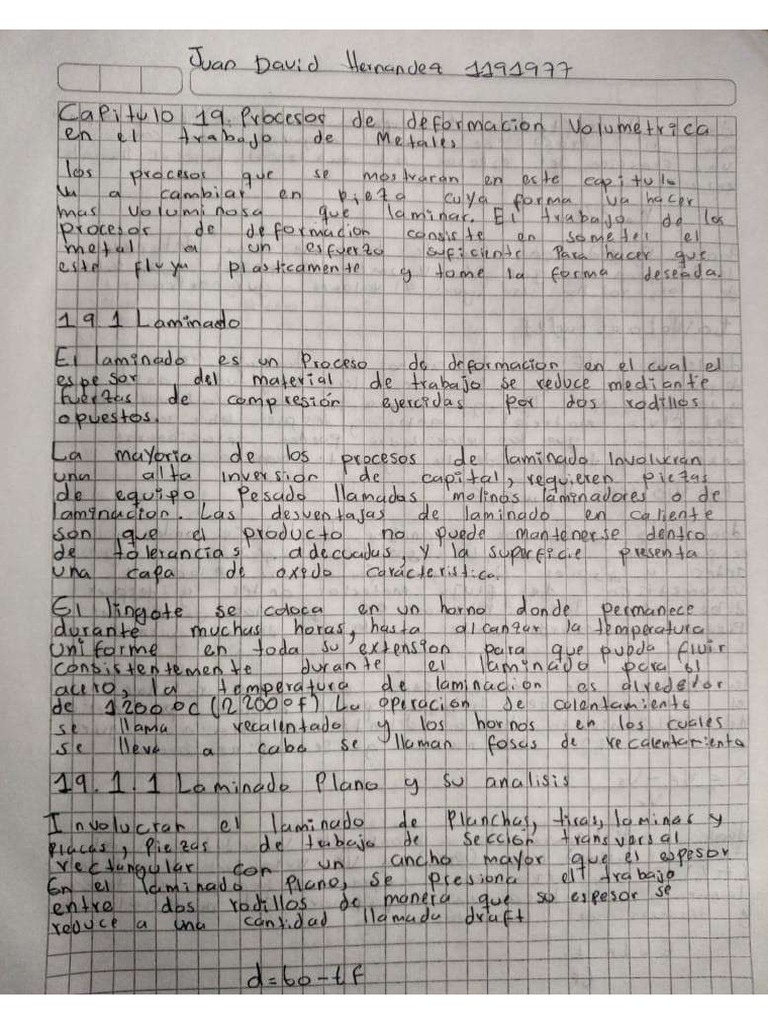 Juan David Hernandez 1191977
Capitulo 19. Procesos de deformacion Volumetrica
en el trabajo de Metales
los procesos que se mostraran en este capitulo
va a cambiar en pieza cuya forma va hacer
mas voluminosa que laminar. El trabajo de los
procesos de deformacion consiste en someter el
metal a un esfuerzo suficiente Para hacer que
este fluya plasticamente y tome la forma deseada.
19 1 Laminado
El laminado es un Proceso de deformacion en el cual el
espesor del material de trabajo se reduce mediante
fuerzas de compresión ejercidas por dos rodillos
opuestos.
La mayoria de los procesos de laminado Involucran
una alta inversion de capital, requieren piezas
de equipo Pesado llamadas molinos laminadores o de
laminacion. Las desventajas de laminado en caliente
son que el producto no puede mantenerse dentro
de tolerancias adecuadas, y la superficie presenta
una capa de oxido caracteristica.
El lingote se coloca en un horno donde permanece
durante muchas horas, hasta alcanzar la temperatura
uniforme en toda su extension para que pueda fluir
consistentemente durante el laminado para el
acero, la temperatura de laminacion es alrededor
de 1200 0C (2200 0F) La operacion de calentamiento
se llama recalentado y los hornos en los cuales
se lleva a cabo se llaman fosas de recalentamiento
19.1.1 Laminado Plano y su analisis
Involucran el laminado de Planchas, tiras, laminas y
placas, Piezas de trabajo de sección transversal
rectangular con un ancho mayor que el espesor
En el laminado Plano, se presiona el trabajo
entre dos rodillos de manera que su espesor se
reduce a una cantidad llamada draft
d=to-tf